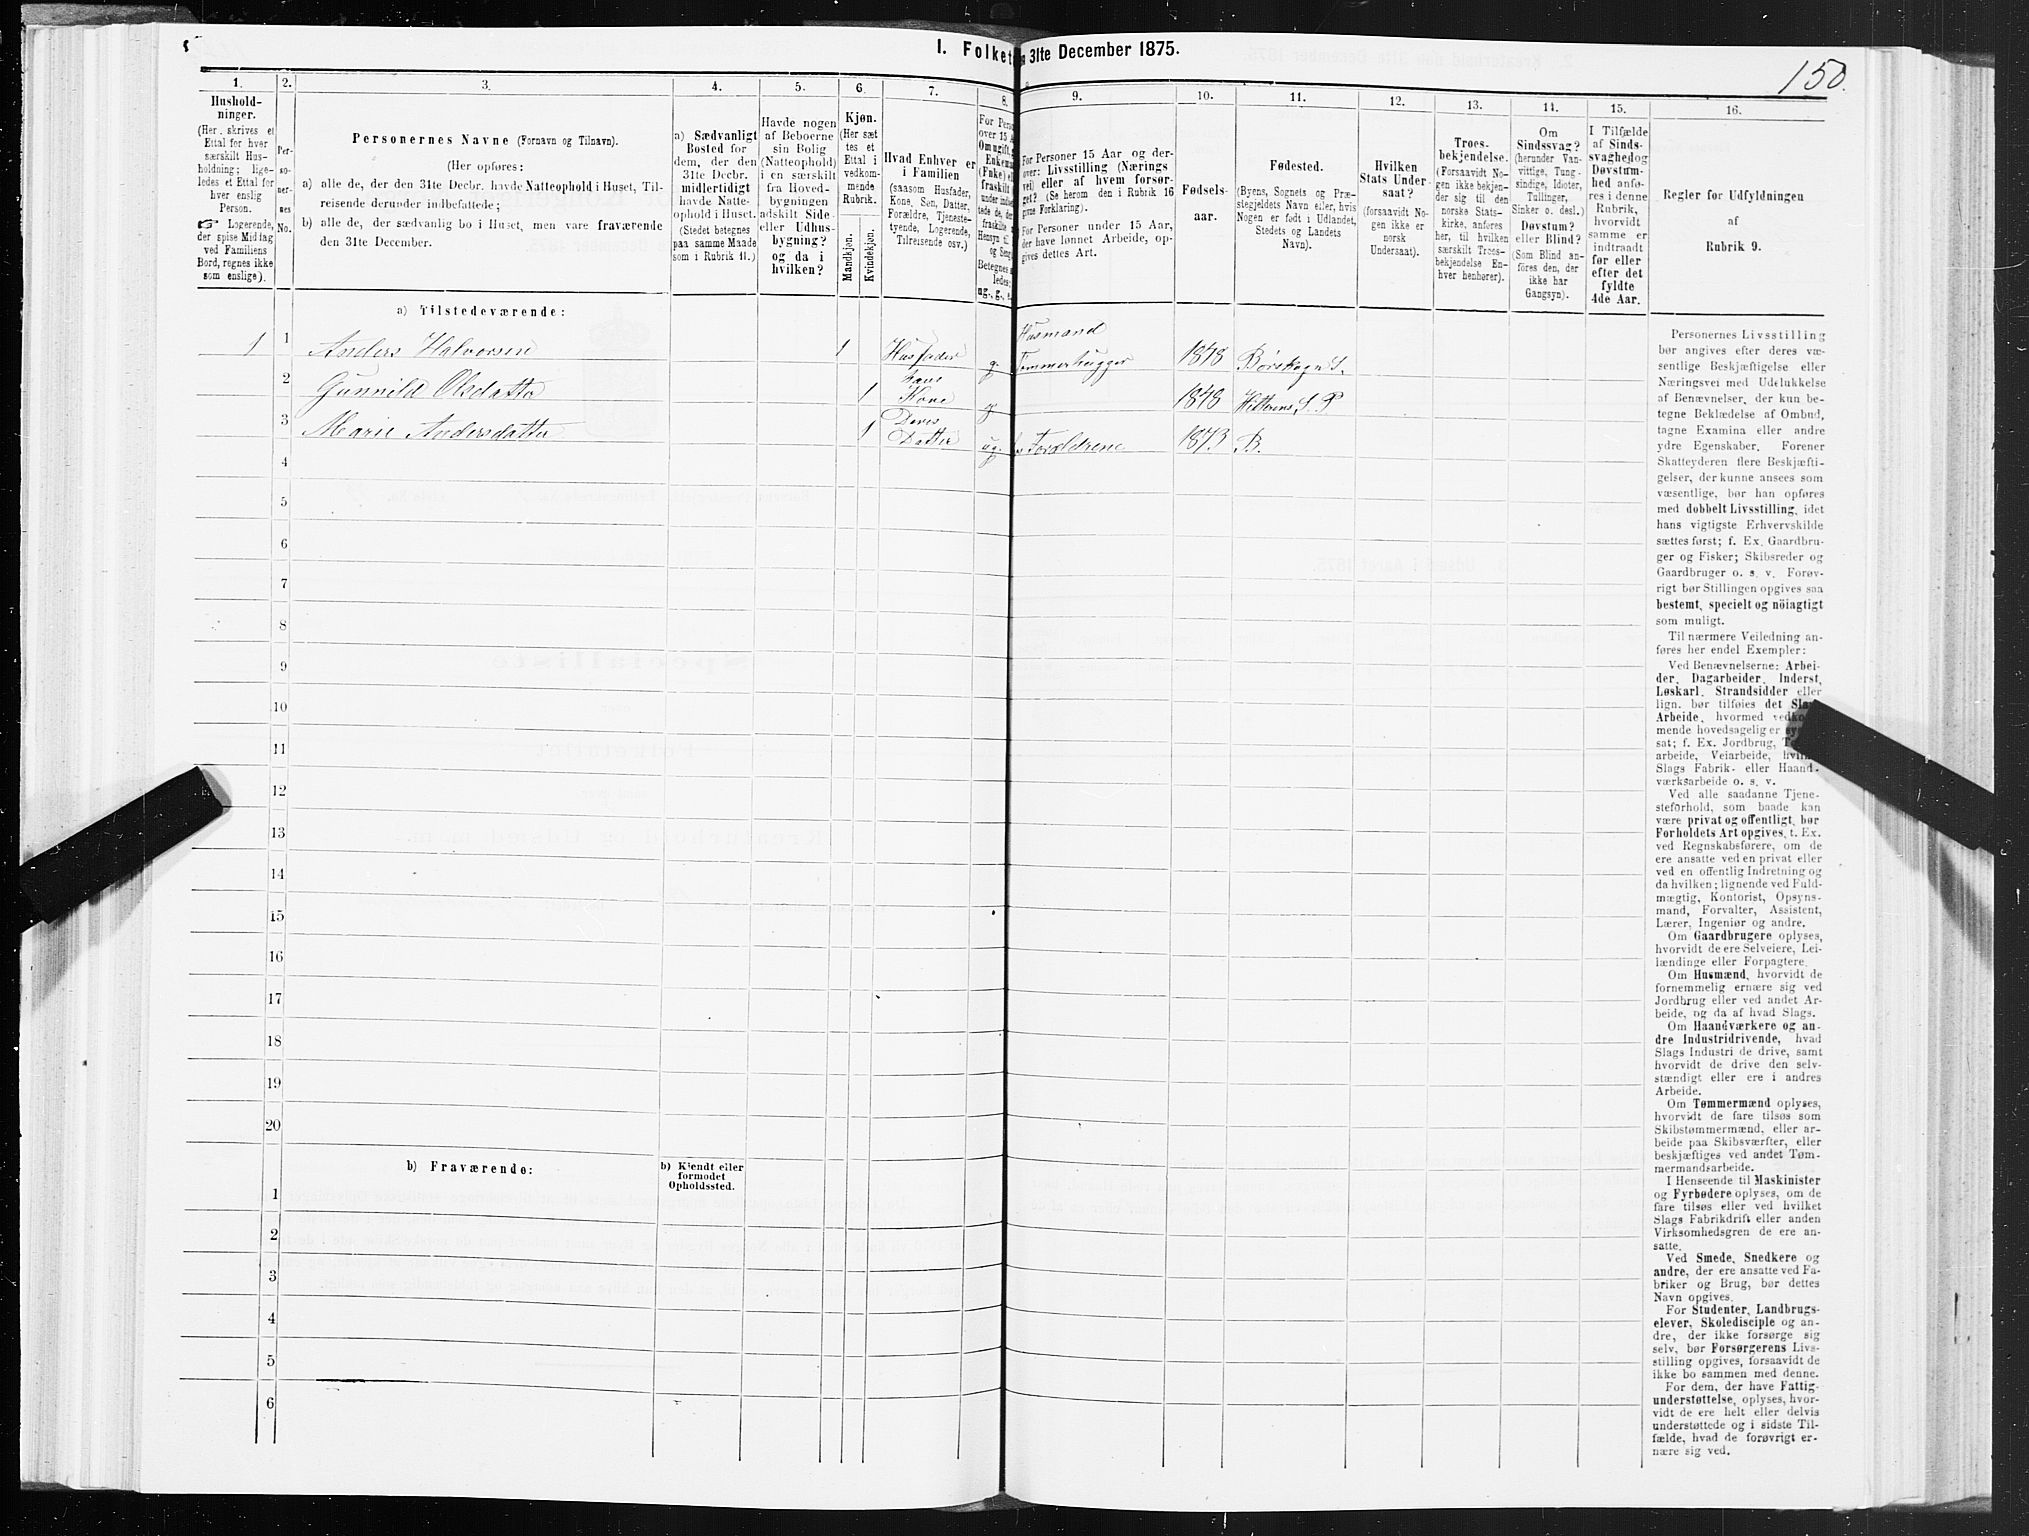 I. Folket
n 31te December 1875.
150.
1.
Hushold-
ninger.
(Her skrives et
Ettal for hver
særskilt Hus-
holdning; lige-
ledes et Ettal for
hver enslig
Person.
☞ Logerende,
der spise Middag
ved Familiens
Bord, regnes ikke
som enslige).
2.
Per-
so-
ner-
nes
No.
3.
Personernes Navne (Fornavn og Tilnavn).
(Her opføres:
a) alle de, der den 31te Decbr. havde Natteophold i Huset, Til-
reisende derunder indbefattede;
b) alle de, der sædvanlig bo i Huset, men vare fraværende
den 31te December.
4.
a) Sædvanligt
Bosted for
dem, der den
31te Decbr.
midlertidigt
havde Natte-
ophold i Huset.
(Stedet betegnes
paa samme Maade
som i Rubrik 11.)
5.
Havde nogen
af Beboerne
sin Bolig
(Natteophold)
i en særskilt
fra Hoved-
bygningen
adskilt Side-
eller Udhus-
bygning?
og da i
hvilken?
6.
Kjøn.
(Her sæt
tes et
Ettal i
vedkom-
mende
Rubrik.
Mandkjøn.
Kvindekjøn.
7.
Hvad Enhver er
i Familien
(saasom Husfader,
Kone, Søn, Datter,
Forældre, Tjeneste-
tyende, Logerende,
Tilreisende osv.)
8.
For Pers
over 15 A
Om ugift, g
Enkema
(Enke) el
fraskilt
9.
For Personer 15 Aar og der-
over: Livsstilling (Nærings
vei) eller af hvem forsør-
get? (Se herom den i Rubrik 16
givne Forklaring).
For Personer under 15 Aar,
der have lønnet Arbeide, op-
gives dettes Art.
10.
Fødsels-
aar.
11.
Fødested.
(Byens, Sognets og Præ-
stegjeldets Navn eller, hvis
Nogen er født i Udlandet,
Stedets og Landets
Navn).
12.
Hvilken
Stats Under-
saat?
(forsaavidt No-
gen ikke er
norsk
Undersaat).
13.
Troes-
bekjendelse.
(Forsaavidt No-
gen ikke bekjen-
der sig til den
norske Stats-
kirke, anføres
her, til hvilken
særskilt Troes-
bekjendelse En-
hver henhører).
14.
Om
Sindssvag?
(herunder Van-
vittige, Tung-
sindige, Idioter,
Tullinger,
Sinker o. desl.)
Døvstum?
eller Blind?
(Som Blind an-
føres den, der
ikke har
Gangsyn).
15.
I Tilfælde
af Sinds-
svaghed og
Døvstum-
hed anfø-
res i denne
Rubrik,
hvorvidt
samme er
indtraadt
før eller
efter det
fyldte
4de Aar.
16.
Regler for Udfyldningen
af
Rubrik 9.
a) Tilstedeværende:
1 1 Anders Halvorsen 1 Husfader g. Husmand Tømmerhugger 1848 Børskogn S.
2 Gunnild Olsdatter 1 hans Kone g 1848 Hitterens S. P
3 Marie Andersdatter 1 Deres Datter ug. Forældrene 1873 B.
4
5
6
7
8
9
10
11
12
13
14
15
16
17
18
19
20
b) Fraværende:
b) Kjendt eller
formodet
Opholdssted.
1
2
3
4
5
6
Personernes Livsstilling
bør angives efter deres væ-
sentlige Beskjæftigelse eller
Næringsvei med Udelukkelse
af Benævnelser, der kun be-
tegne Beklædelse af Ombud,
tagne Examina eller andre
ydre Egenskaber. Forener
Skatteyderen flere Beskjæfti-
gelser, der kunne ansees som
væsentlige, bør han opføres
med dobbelt Livsstilling, idet
hans vigtigste Erhvervskilde
sættes først; f. Ex. Gaardbru-
ger og Fisker; Skibsreder og
Gaardbruger o. s. v. Forøv-
rigt bør Stillingen opgives saa
bestemt, specielt og nöiagtigt
som muligt.
Til nærmere Veiledning an-
føres her endel Exempler:
Ved Benævnelserne: Arbei-
der, Dagarbeider, Inderst,
Løskarl, Strandsidder eller
lign. bør tilføies det Slags
Arbeide, hvormed vedkom-
mende hovedsagelig er sys
sat; f. Ex. Jordbrug, T
arbeide, Veiarbeide, hvilket
Slags Fabrik- eller Haand-
værksarbeide o. s. v.
Ved alle saadanne Tjene-
steforhold, som baade kan
være privat og offentligt, bør
Forholdets Art opgives, t. Ex.
ved Regnskabsførere, om de
ere ansatte ved en privat eller
ved en offentlig Indretning og
da hvilken; lignende ved Fuld-
mægtig, Kontorist, Opsyns-
mand, Forvalter, Assistent,
Lærer, Ingeniør og andre.
Om Gaardbrugere oplyses,
hvorvidt de ere Selveiere, Lei-
lændinge eller Forpagtere.
Om Husmænd, hvorvidt de
fornemmelig ernære sig ved
Jordbrug eller ved andet Ar-
beide, og da af hvad Slags.
Om Haandværkere og an-
dre Industridrivende, hvad
Slags Industri de drive, samt
hvorvidt de drive den selv-
stændigt eller ere i andres
Arbeide.
Om Tømmermænd oplyses,
hvorvidt de fare tilsøs som
Skibstømmermænd, eller ar-
beide paa Skibsværfter, eller
beskjæftiges ved andet Tøm-
mermandsarbeide.
I Henseende til Maskinister
og Fyrbødere oplyses, om de
fare tilsøs eller ved hvilket
Slags Fabrikdrift eller anden
Virksomhedsgren de ere an-
satte.
Ved Smede, Snedkere og
andre, der ere ansatte ved Fa-
briker og Brug, bør dettes
Navn opgives.
For Studenter, Landbrugs-
elever, Skoledisciple og an-
dre, der ikke forsørge sig
selv, bør Forsørgerens Livs-
stilling opgives, forsaavidt de
ikke bo sammen med denne.
For dem, der have Fattig-
understøttelse, oplyses, hvor-
vidt de ere helt eller delvis
understøttede og i sidste Til-
fælde, hvad de forøvrigt er-
nære sig ved.